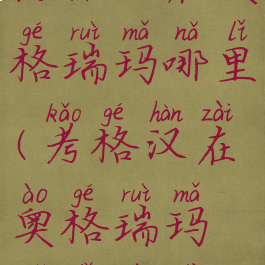 gé ruì mǎ nǎ lǐ
格瑞玛哪里
kǎo gé hàn zài
(考格汉在
ào gé ruì mǎ
奥格瑞玛